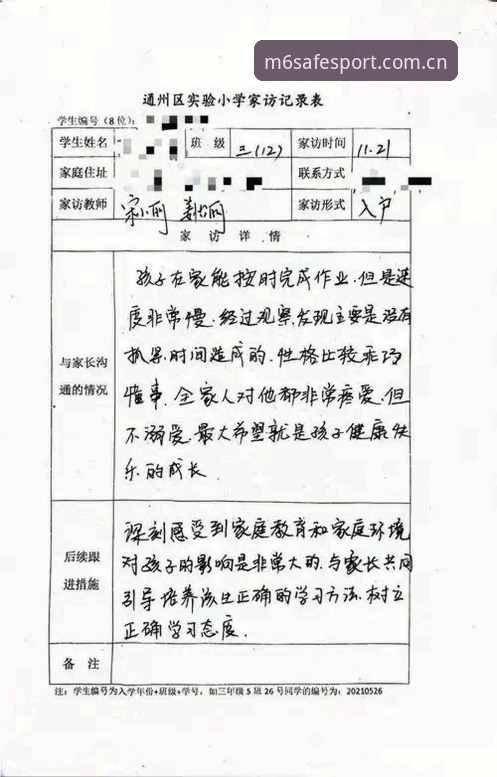 m6safesport.com.cn
通州区实验小学家访记录表
学生编号（8位）：
学生姓名 班 级 三(12) 家访时间 11.21
家庭住址 联系方式
家访教师 宋小丽 丽 家访形式 入户
家 访 详 情
与家长沟通的情况
孩子在家能按时完成作业.但是速
度非常慢.经过观察,发现主要是没有
抓紧时间造成的.性格比较乖巧
懂事.全家人对他都非常疼爱.但
不溺爱.最大希望就是孩子健康快
乐的成长.
后续跟进措施
深刻感受到家庭教育和家庭环境
对孩子的影响是非常大的.与家长共同
引导培养该生正确的学习方法.树立
正确学习态度.
备 注
注：学生编号为入学年份+班级+学号，如三年级5班26号同学的编号为：20210526